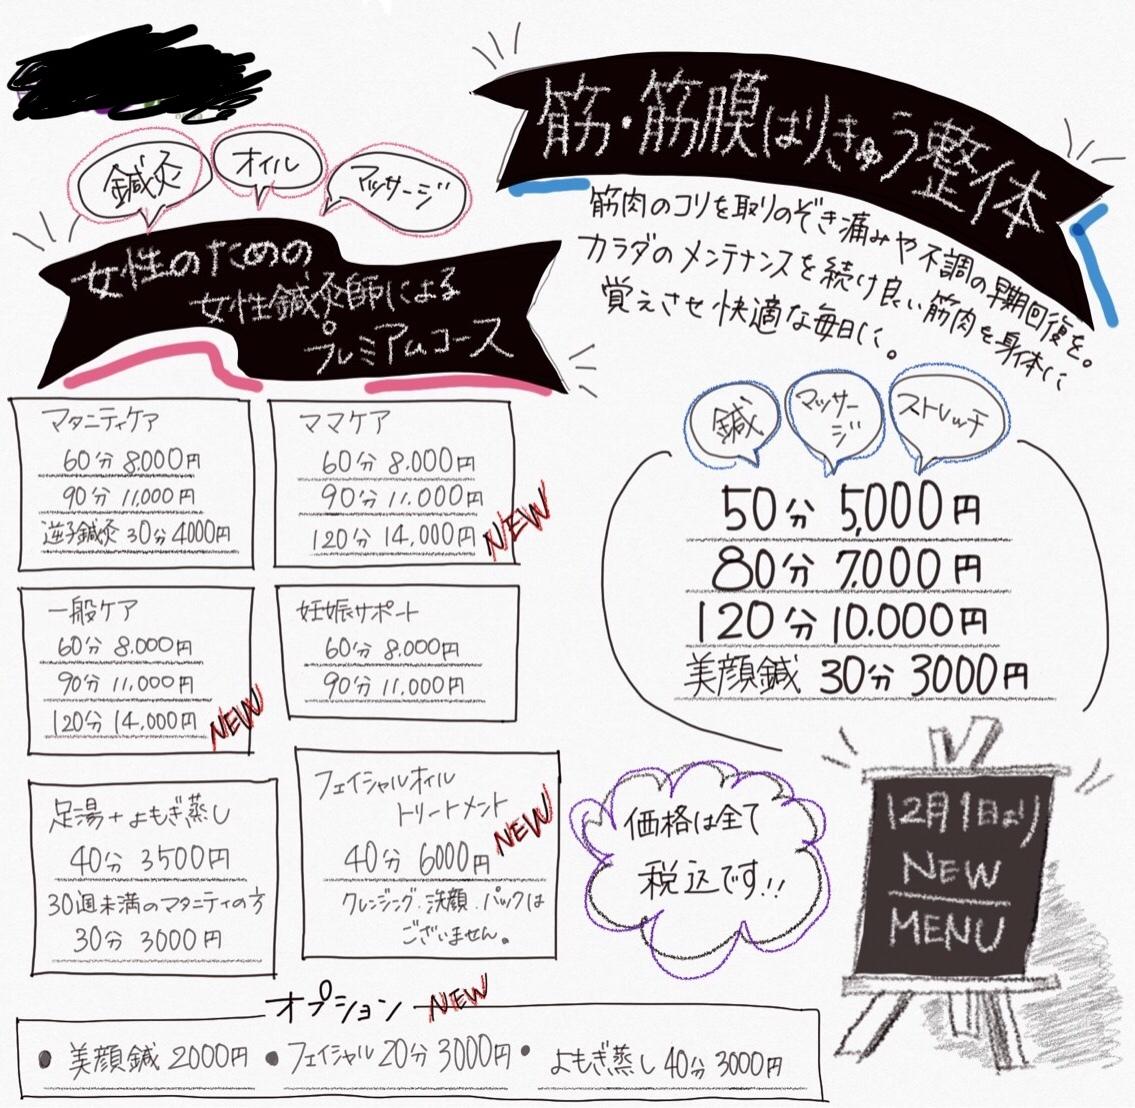 鍼灸
オイル
マッサージ
女性のための
女性鍼灸師による
プレミアムコース
マタニティケア
60分 8,000円
90分 11,000円
逆子鍼灸 30分 4000円
ママケア
60分 8,000円
90分 11,000円
120分 14,000円
NEW
一般ケア
60分 8,000円
90分 11,000円
120分 14,000円
NEW
妊娠サポート
60分 8,000円
90分 11,000円
足湯+よもぎ蒸し
40分 3500円
30週未満のマタニティの方
30分 3000円
フェイシャルオイル
トリートメント
NEW
40分 6000円
クレンジング、洗顔、パックは
ございません。
筋・筋膜はりきゅう整体
筋肉のコリを取りのぞき痛みや不調の早期回復を。
カラダのメンテナンスを続け良い筋肉を身体に
覚えさせ快適な毎日に。
鍼
マッサー
ジ
ストレッチ
50分 5,000円
80分 7,000円
120分 10,000円
美顔鍼 30分 3000円
価格は全て
税込です!!
12月1日より
NEW
MENU
オプション NEW
• 美顔鍼 2000円 • フェイシャル20分 3000円 • よもぎ蒸し 40分 3000円